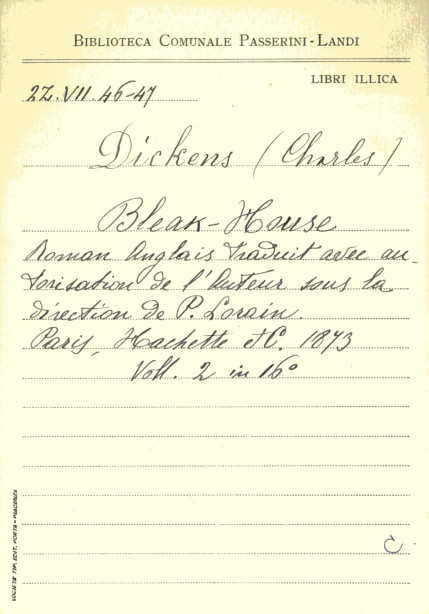 BIBLIOTECA COMUNALE PASSERINI-LANDI
LIBRI ILLICA
2Z.VII.46-47
Dickens (Charles)
Bleak-House
Roman Anglais traduit avec au-
torisation de l'Auteur sous la
direction de P. Lorain.
Paris, Hachette et C. 1873
Voll. 2 in 16°
C
SOCIETÀ TIP. EDIT. PORTA - PIACENZA